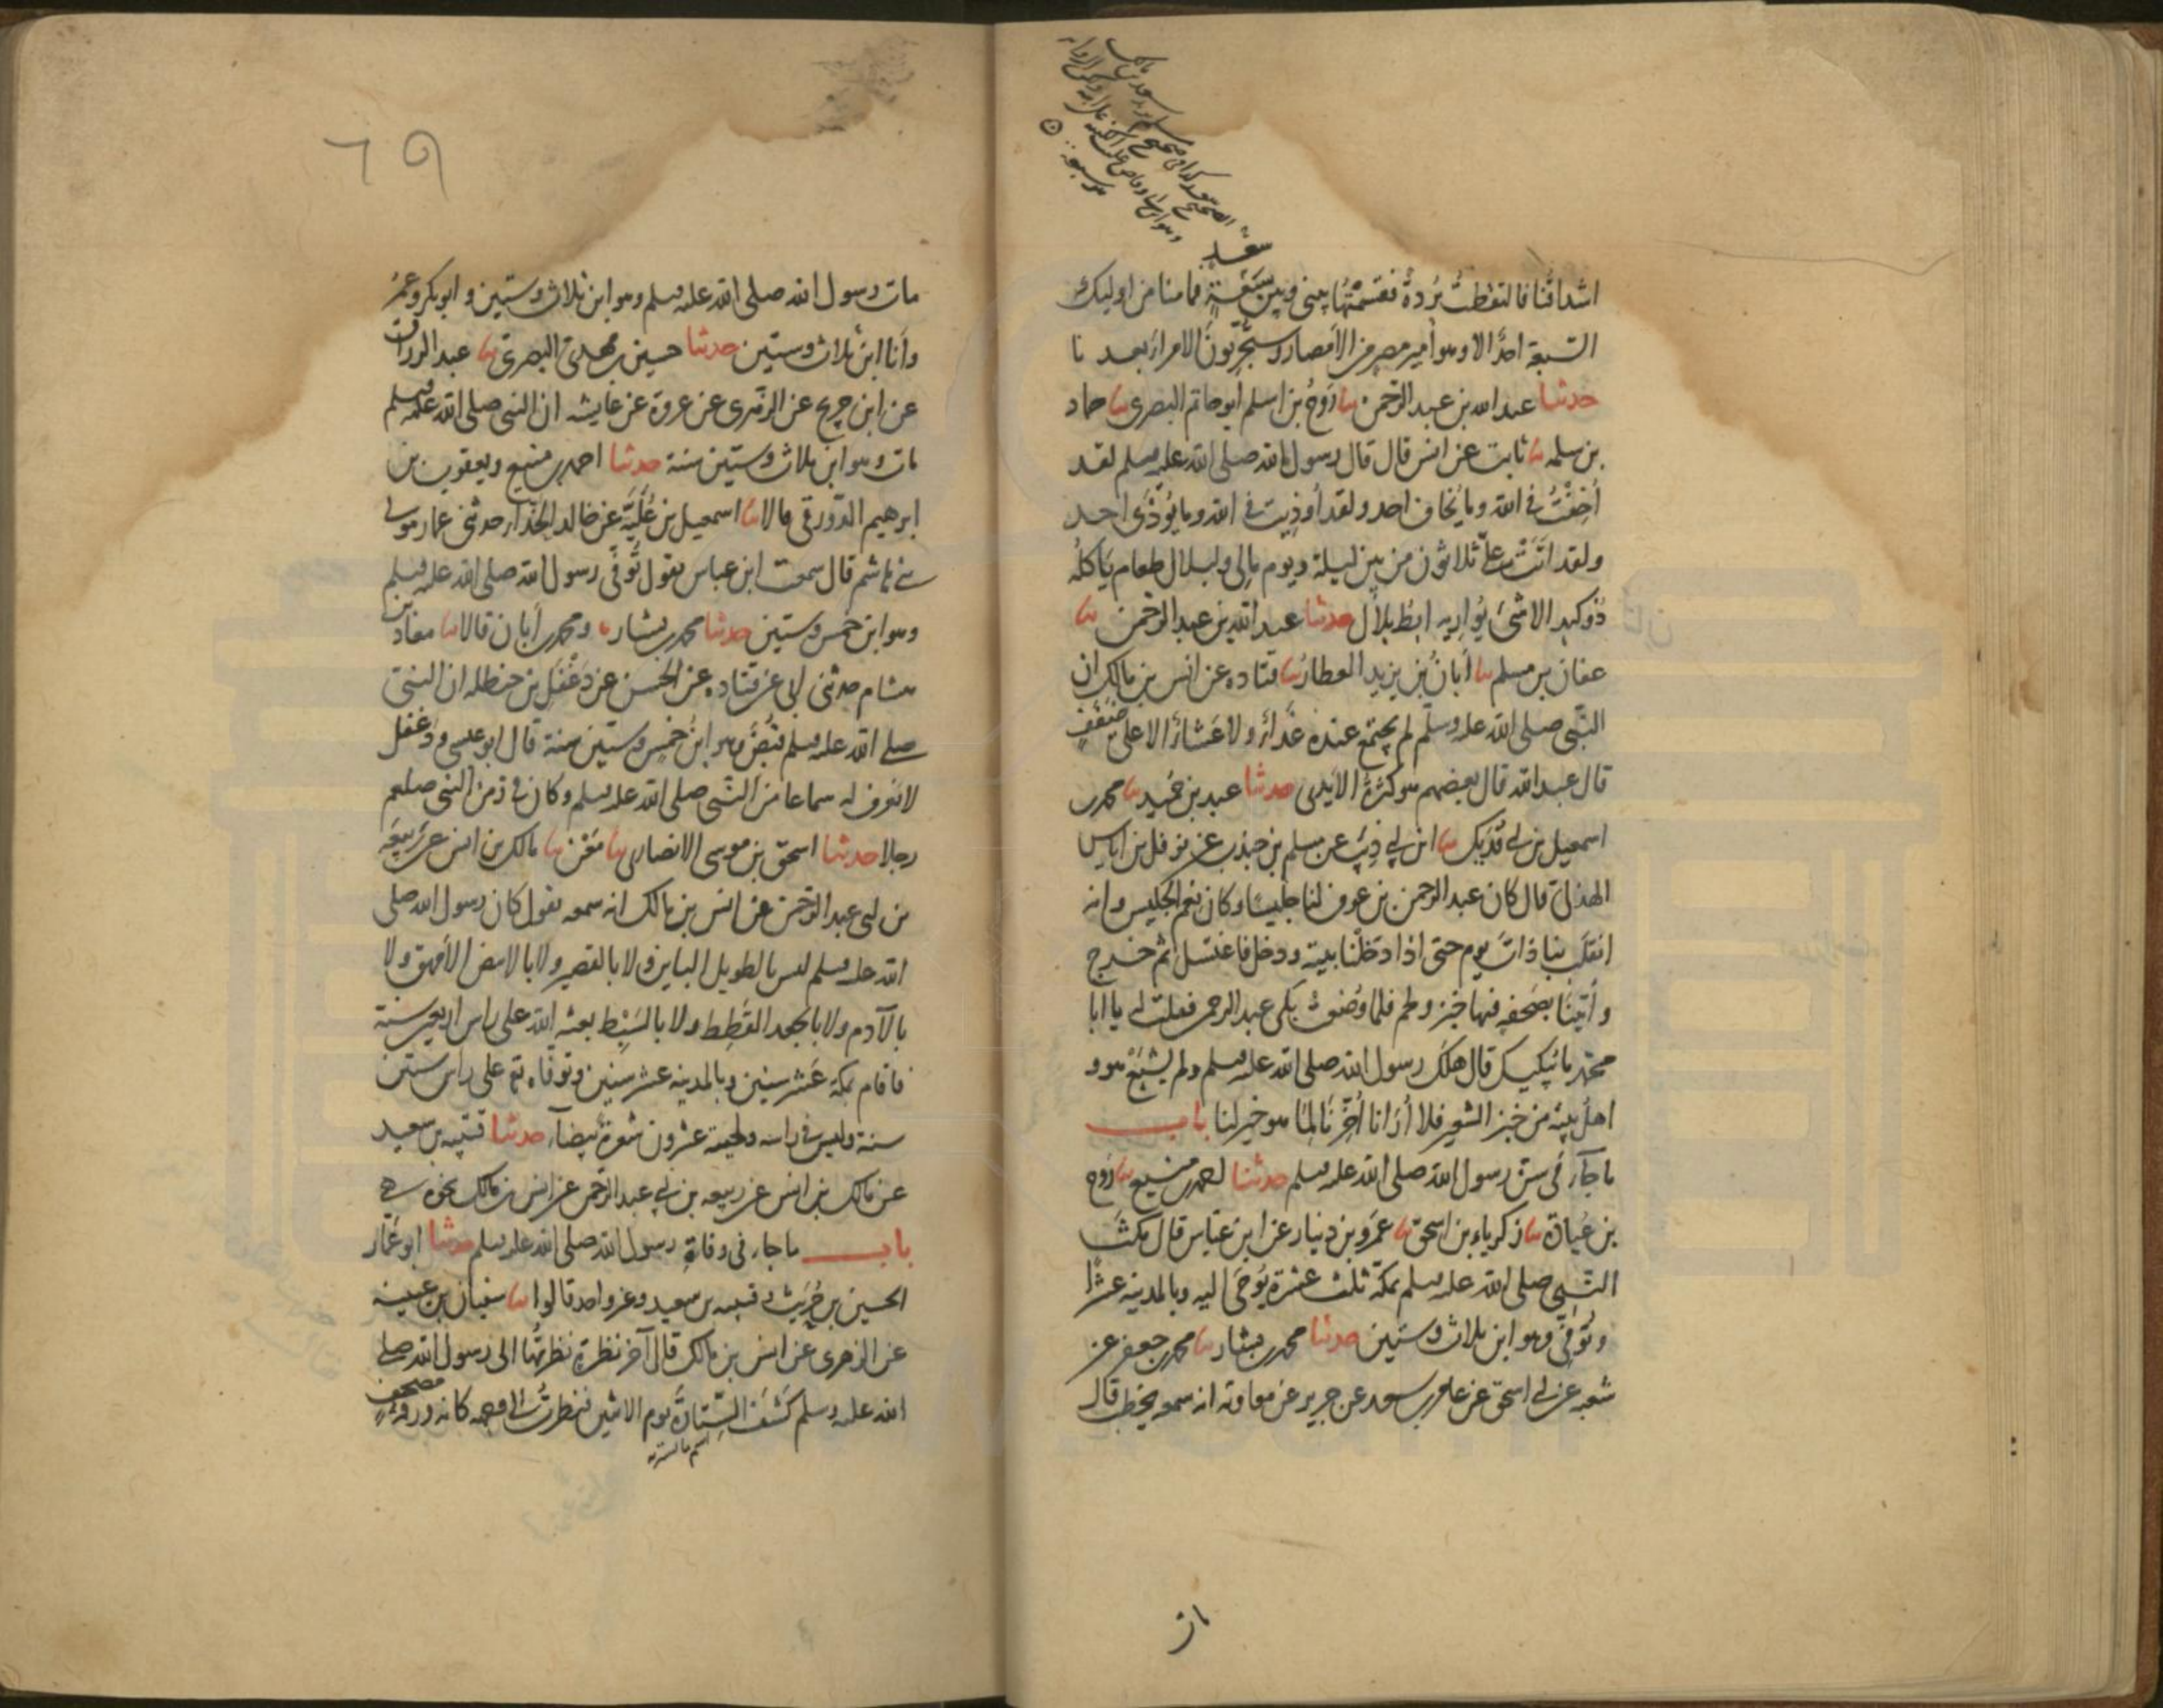 سعد
اشداقنا فالتقطت بُردة فقسمتها بيني وبين سبعة فما منا من اوليك
السبعة احد الا وهو أمير مصر من الأمصار وستجربون الامراء بعدنا
حدثنا عبد الله بن عبد الرحمن ثنا رَوح بن اسلم ابو حاتم البصرى ثنا حماد
بن سلمه ثنا ثابت عن انس قال قال رسول الله صلى الله عليه وسلم لقد
أُخِفْتُ في الله وما يُخاف احد ولقد أوذيت في الله وما يُؤذَى احد
ولقد اتَتْ علىّ ثلاثون من بين ليلة ويوم مالى ولبلال طعام يَاكله
ذو كبد الا شئ يُواريه ابط بلال حدثنا عبد الله بن عبد الرحمن ثنا
عفان بن مسلم ثنا أبان بن يزيد العطار ثنا قتاده عن انس بن مالك ان
النبى صلى الله عليه وسلم لم يجتمع عنده غداء ولا عشاء الا على ضفف
قال عبد الله قال بعضهم هو كثرة الايدى حدثنا عبد بن حميد ثنا محمد بن
اسمعيل بن ابى فديك ثنا ابن ابى ذيب عن مسلم بن جندب عن نوفل بن اياس
الهذلى قال كان عبد الرحمن بن عوف لنا جليسا وكان نعم الجليس وانه
انقلب بنا ذات يوم حتى اذا دخلنا بيته ودخل فاغتسل ثم خرج
وأتينا بصحفه فيها خبز ولحم فلما وُضعت بكى عبد الرحمن فقلت له يا ابا
محمد ما يُبكيك قال هلك رسول الله صلى الله عليه وسلم ولم يشبع هو و
اهل بيته من خبز الشعير فلا أرانا أُخّرنا لما هو خير لنا باب
ما جآء فى سن رسول الله صلى الله عليه وسلم حدثنا احمد بن منيع ثنا روح
بن عبادة ثنا زكرياء بن اسحق ثنا عمرو بن دينار عن ابن عباس قال مكث
النبى صلى الله عليه وسلم بمكة ثلث عشرة يُوحَى اليه وبالمدينه عشرًا
وتُوفّى وهو ابن ثلاث وستين حدثنا محمد بن بشار ثنا محمد بن جعفر عن
شعبه عن ابى اسحق عن عامر بن سعد عن جرير عن معاوية انه سمعه يخطب قال
مات
٦٩
مات رسول الله صلى الله عليه وسلم وهو ابن ثلاث وستين وابو بكر وعمر
وأنا ابن ثلاث وستين حدثنا حسين بن مهدى البصرى ثنا عبد الرزاق
عن ابن جريج عن الزهرى عن عروة عن عايشه ان النبى صلى الله عليه وسلم
مات وهو ابن ثلاث وستين سنة حدثنا احمد بن منيع ويعقوب بن
ابرهيم الدورقى قالا ثنا اسمعيل بن عُلَيَّة عن خالد الحذاء حدثنى عمار مولى
بنى هاشم قال سمعت ابن عباس يقول تُوفّى رسول الله صلى الله عليه وسلم
وهو ابن خمس وستين حدثنا محمد بن بشار ومحمد بن أبان قالا ثنا معاذ بن
هشام حدثنى ابى عن قتاده عن الحسن عن دَغْفَل بن حنظله ان النبى
صلى الله عليه وسلم قُبض وهو ابن خمس وستين سنة قال ابو عيسى ودغفل
لا نعرف له سماعا من النبى صلى الله عليه وسلم وكان فى زمن النبى صلعم
رجلا حدثنا اسحق بن موسى الانصارى ثنا مَعْن ثنا مالك بن انس عن ربيعة
بن ابى عبد الرحمن عن انس بن مالك انه سمعه يقول كان رسول الله صلى
الله عليه وسلم ليس بالطويل الباين ولا بالقصير ولا بالابيض الأمهق ولا
بالآدم ولا بالجعد القَطِط ولا بالسَبْط بعثه الله على راس اربعين سنة
فاقام بمكة عشر سنين وبالمدينه عشر سنين وتوفاه تع على راس ستين
سنة وليس فى راسه ولحيته عشرون شعرة بيضآء حدثنا قتيبه بن سعيد
عن مالك بن انس عن ربيعه بن ابى عبد الرحمن عن انس بن مالك نحوه
باب ما جاء فى وفاة رسول الله صلى الله عليه وسلم حدثنا ابو عمار
الحسين بن حُريث وقتيبه بن سعيد وغير واحد قالوا ثنا سفيان بن عيينة
عن الزهرى عن انس بن مالك قال آخر نظرة نظرتها الى رسول الله صلى
الله عليه وسلم كَشَف السِّتارة يوم الاثنين فنظرت الى وجهه كانه ورقة مصحف